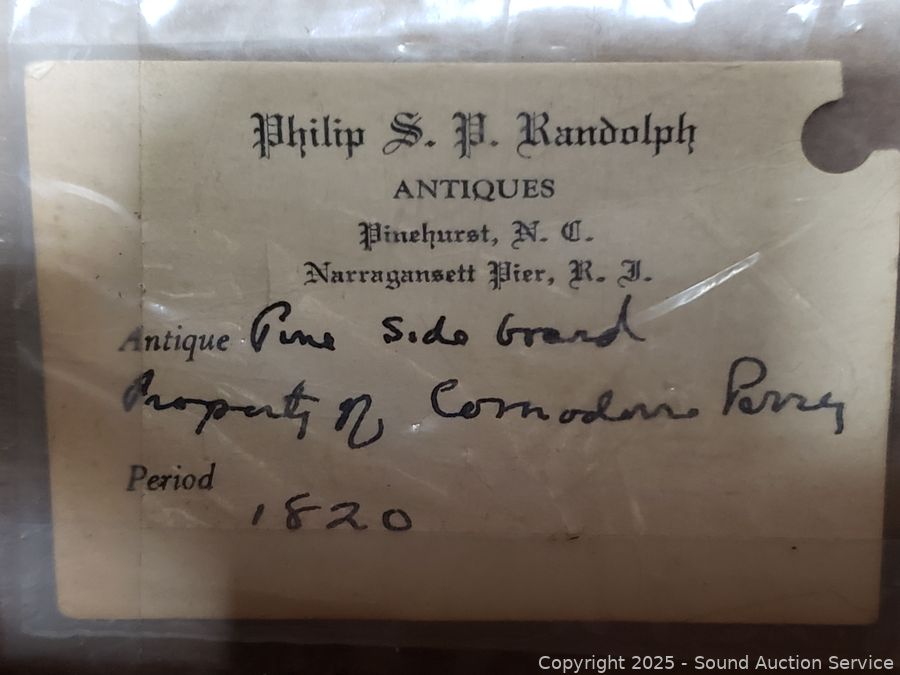 Philip S. P. Randolph
ANTIQUES
Pinehurst, N. C.
Narragansett Pier, R. I.
Antique Pine Side board
Property of Comodore Perry
Period
1820
Copyright 2025 - Sound Auction Service